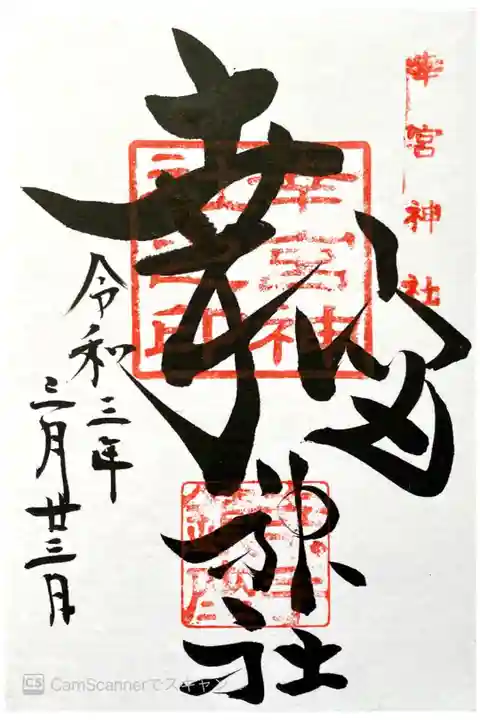 幸宮神社
幸宮神社
令和三年
三月廿三日
幸宮神社之印
CamScannerでスキャン